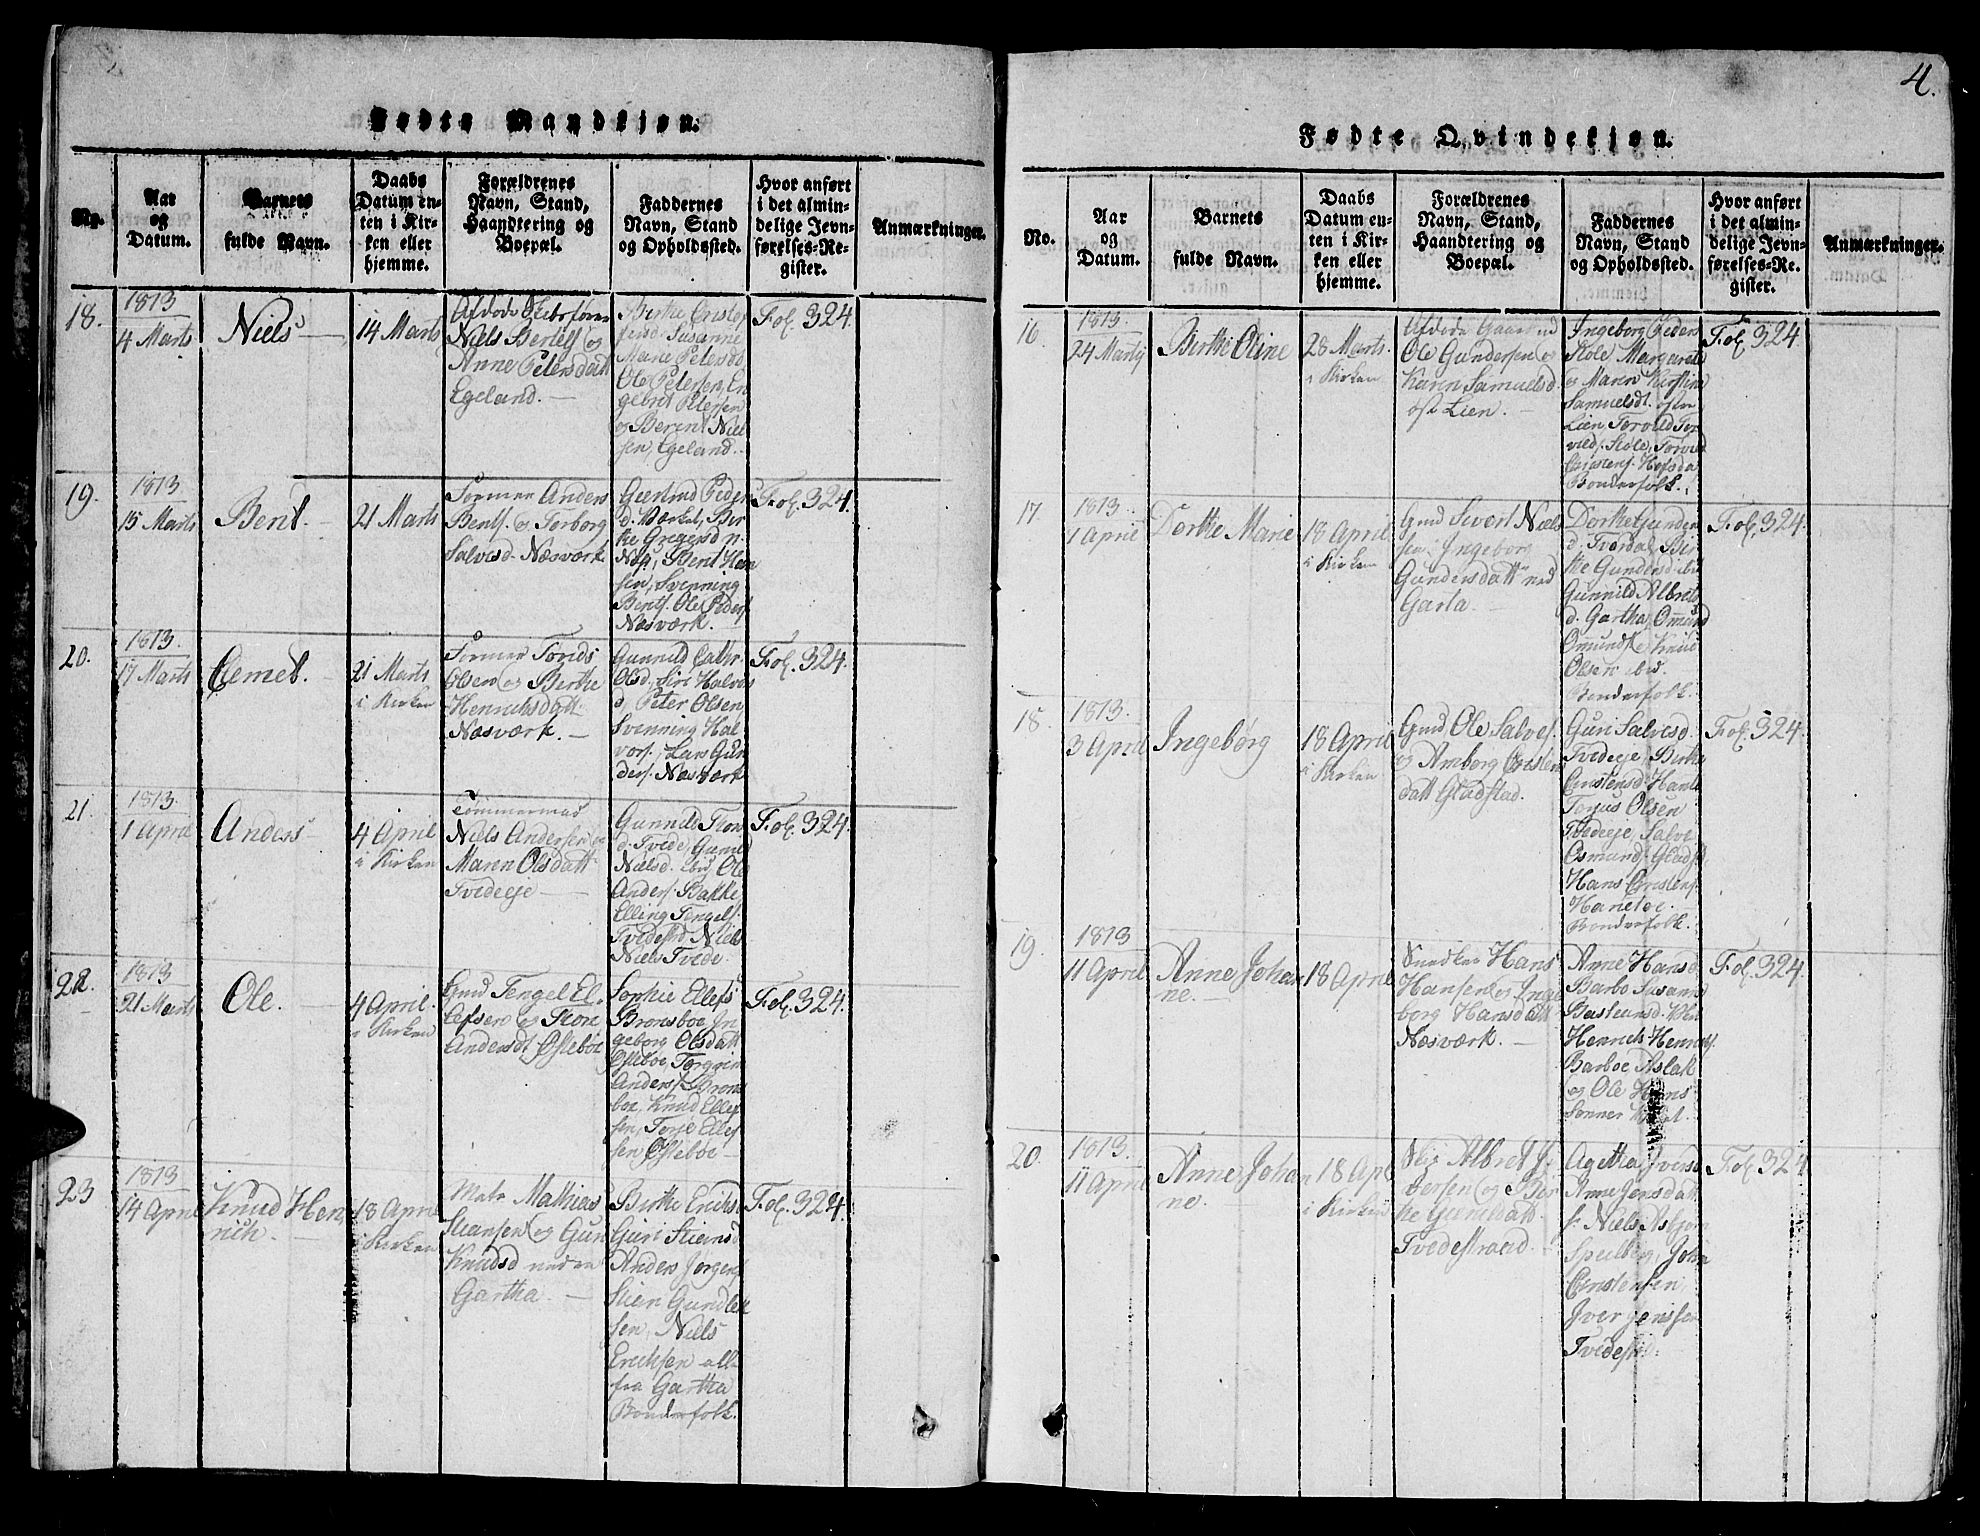 4.
Fødte Mandkjøn.
No.
Aar
og
Datum.
Barnets
fulde Navn.
Daabs
Datum en-
ten i Kir-
ken eller
hjemme.
Forældrenes
Navn, Stand,
Haandtering og
Boepæl.
Faddernes
Navn, Stand
og Opholdssted.
Hvor anført
i det almin-
delige Jevn-
førelses-Re-
gister.
Anmærkninger.
18.
1813
4 Marts
Niels
14 Marts
Afdøde
Niels Bertels og
Anne Petersdatt
Egeland.
Berthe
Susanne
Marie Petersd
Ole Petersen, En-
gebret Petersen
og Berent Niel-
sen, Egeland.
Fol. 324.
19.
1813
15 Marts
Bent.
21 Marts
Former Anders
Bents. og Torborg
Salvesd. Næsværk
Giertrud Peders
d. Værket, Ber-
the Gregersd n.
Næs, Bent Han-
sen, Svenning
Bents. Ole Peders
Næsværk.
Fol. 324.
20.
1813.
17 Marts
Clemet.
21 Marts
i Kirken
Former
Olsen og Berthe
Henrichsdatt
Næsværk.
Gunnild Cathr
Olsd, Siri Halvors
d, Peter Olsen
Svenning Hal-
vors. Lars Gun-
ders. Næsværk
Fol. 324.
21.
1813.
1 April
Anders
4 April
i Kirken
Tømmermad
Niels Andersen og
Maren Olsdatt
Tvedeeje
Gunnild
d. Tvede, Gunild
Nielsd. ibid Ole
Anders. Bakke
Elling Tengels.
Tvedestd. Niels
Niels. Tvede.
Fol. 324.
22.
1813
21 Marts
Ole.
4 April.
i Kirken
Gmd Tengel El-
lefsen og Thore
Andersdt Østeböe
Sophie Ellefs
Bronsboe In-
geborg Olsdatt
Østeboe,
Anders. Brons-
boe, Knud Ellef
sen, Torje Ellef
sen Østeböe
Fol. 324.
23
1813
14 April
Knud Hen-
rich.
18 April
i Kirken
Matr Mathias
Steansen og Gun
Knudsd neden
Gartha.
Berthe Erichs
Guri Steensd
Anders Jørgens
Steen Gundlek
sen, Niels
Erichsen alle
fra Gartha
Bonderfolk.
Fol. 324.
Fødte Qvindekjøn.
No.
Aar
og
Datum.
Barnets
fulde Navn.
Daabs
Datum en-
ten i Kir-
ken eller
hjemme.
Forældrenes
Navn, Stand,
Haandtering og
Boepæl.
Faddernes
Navn, Stand
og Opholdssted.
Hvor anført
i det almin-
delige Jevn-
førelses-Re-
gister.
Anmærkninger.
16
1813.
24 Martij
Berthe Oline
28 Marts.
i Kirken
Afdøde
Ole Gundersen og
Karen Samuelsd.
øst Lien.
Ingeborg Peders
Skole Margarete
og Maren Kirstine
Samuelsdt. østre
Lien, Torvild Tor-
vilds. Skole, Torvild
Christens. Hofsda
Bonderfolk.
Fol. 324.
17
1813.
1 April
Dorthe Marie
18 April
i Kirken
Gmd Sivert Niel-
sen, Ingeborg
Gundersdatt ned
Garta.
Dorthe Gunders
d. Tverdal, Bir-
the Gundersd. ibid
Gunnild Albrits
d. Gartha, Omund
Omunds. Knud
Olsen ibd.
Bonderfolk.
Fol. 324.
18.
1813.
3 April
Ingebørg
18 April
i Kirken
Gmd Ole Salves.
og Anborg Cristens
datt Gladstad.
Guri Salvesd.
Tvedeeje, Berthe
Cristensd. Hantho
Torjus Olsen
Tvedeeje, Salve
Osmunds. Gladst.
Hans Cristens.
Hanetoe.
Bonderfolk.
Fol. 324.
19.
1813
11 April
Anne Johan-
ne.
18 April
Snedker Hans
Hansen og Inge-
borg Hansdatt
Næsværk.
Anne Hansd.
Barbo Susanne
Bastiansd.
Henrich Henrichs.
Barboe Aslak
og Ole Hans
sønner
Fol. 324.
20.
1813.
11 April
Anne Johan-
ne.
18 Apl
i Kirken
Albret
dersen og Ber-
the Gundsdatt.
Tvedestrand.
Agetha Iversd
Anne Jensdatt
Niels Asbjørn
John
Cristensen,
Iver Jenssen
Tvedest.
Fol. 324